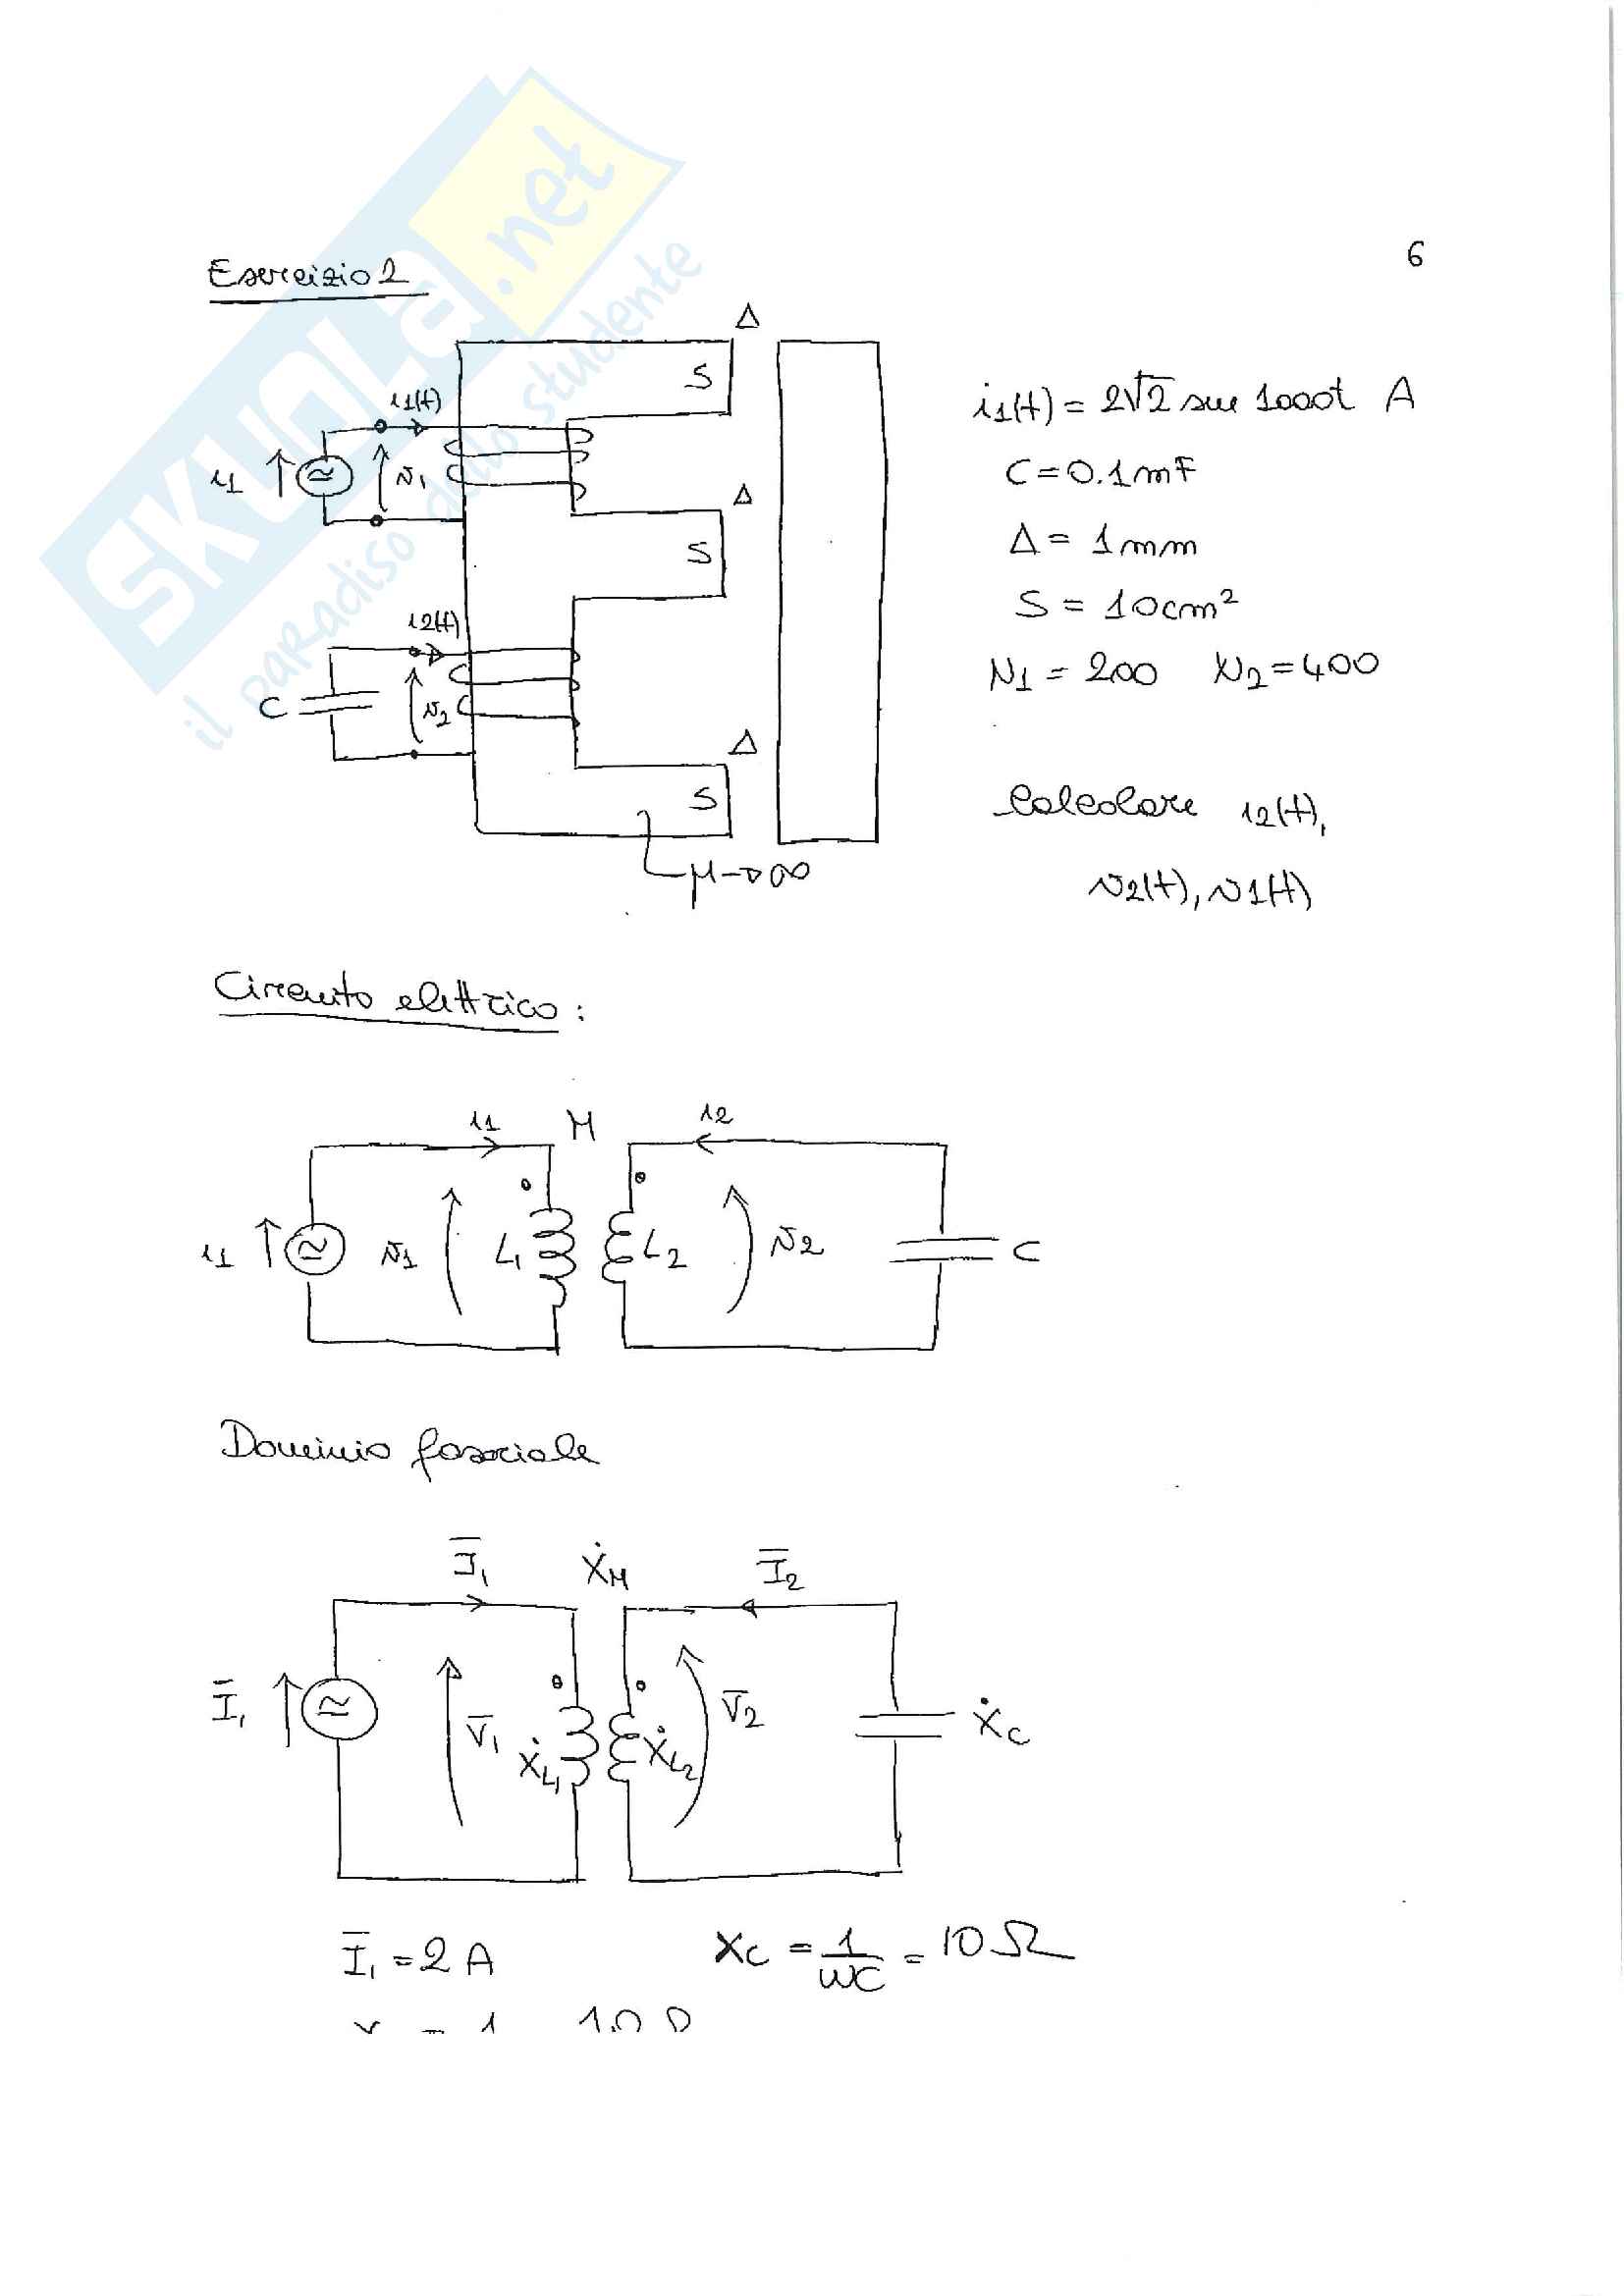 SKUOLA.net
il paradiso dello studente
6
Esercizio 2
Δ
S
i1(t)
i1
v1
Δ
S
i2(t)
C
v2
Δ
S
μ→∞
i1(t) = 2√2 sen 1000t A
C = 0.1mF
Δ = 1mm
S = 10cm²
N1 = 200 N2 = 400
Calcolare i2(t),
v2(t), v1(t)
Circuito elettrico:
i1 M i2
i1 v1 L1 L2 v2 C
Dominio fasoriale
I̅1 ẊM I̅2
I̅1 V̅1 ẊL1 ẊL2 V̅2 ẊC
I̅1 = 2 A XC = 1/ωC = 10 Ω